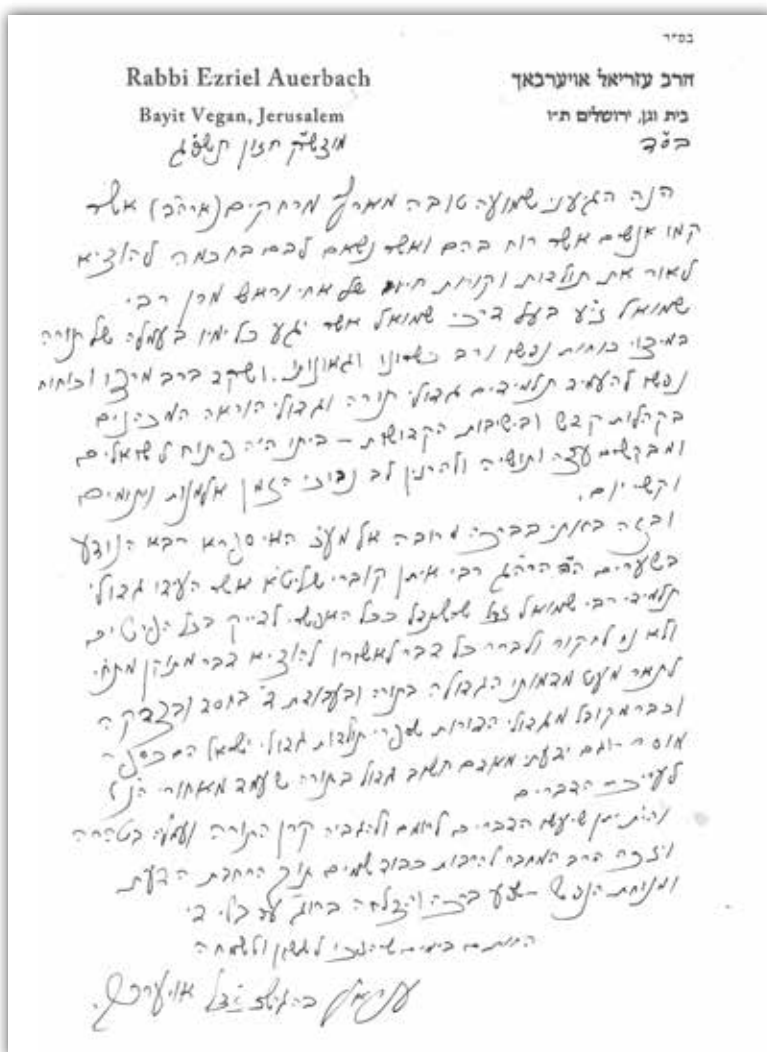 בס"ד
Rabbi Ezriel Auerbach הרב עזריאל אויערבאך
Bayit Vegan, Jerusalem בית וגן, ירושלים ת"ו
מוצש"ק חזון תשפ"ג בס"ד
הנה הגיעני שמועה טובה מארץ מרחקים (ארה"ב) אשר
קמו אנשים אשר רוח בהם ואשר נשאם לבם בחכמה להוציא
לאור את תולדות וקורות חייו של אחי וראש מרן רבי
שמואל זי"ע בעל דרכי שמואל אשר יגע כל ימיו בעמלה של תורה
במיצוי כוחות נפשו ורב כשרונו וגאונותו. ושקד ברב מרצו וכוחות
נפשו להעמיד תלמידים גדולי תורה וגדולי הוראה המכהנים
בקהלות קדש ובישיבות הקדושות – ביתו היה פתוח לשואלים
ומבקשים עצה ותושיה ולהרנין לב נבוכי הזמן אלמנות ויתומים
וקשי יום.
ובזה באתי בברכה מרובה אל מעז האי ספרא רבא הנודע
בשערים הרה"ג רבי איתן קוברי שליט"א אשר העידו גדולי
תלמידי רבי שמואל זצ"ל שהשתדל ככל האפשר לדייק בכל הפרטים
ולא נח לחקור ולברר כל דבר לאשורו להוציא דבר מתוקן מתח"י
לתאר מעט מדמותו הגדולה בתורה ובעבודת ד' בחסד ובצדקה
וכבר מקובל מגדולי הדורות שספרי תולדות גדולי ישראל הם כספרי
מוסר וגם ידעתי מאדם חשוב גדול בתורה שעמד מאחורי הנ"ל
לעריכת הדברים
והשי"ת יתן שיעשו הדברים לרומם ולהגביה קרן התורה ועמלה בטהרה
ויזכה הרב המחבר להרבות כבוד שמים תוך הרחבת הדעת
ומנוחת הנפש ושפע ברכה והצלחה ברו"ג עד בלי די
החותם בימים שיהפכו לששון ולשמחה
עזריאל בהגרש"ז זצ"ל אויערבאך